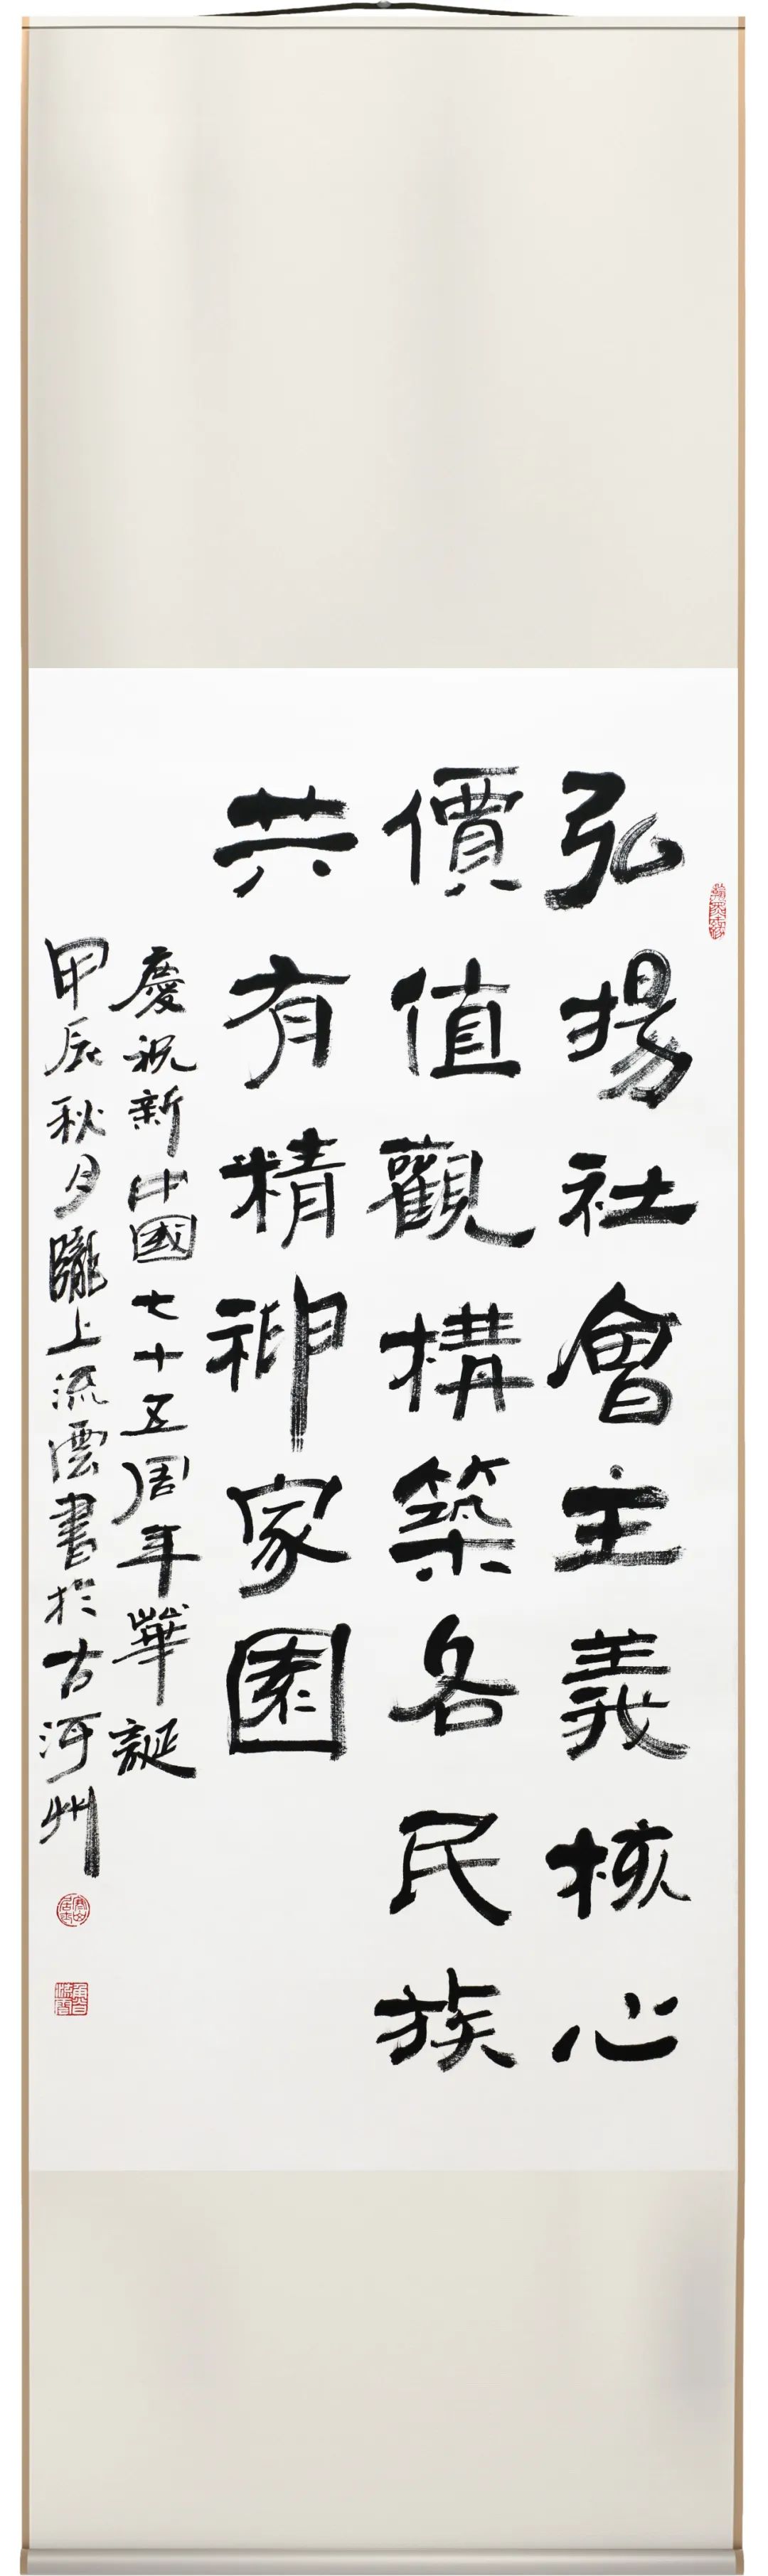 弘揚社會主義核心
價值觀構築各民族
共有精神家園
慶祝新中國七十五周年華誕
甲辰秋月隴上流雲書於古河州